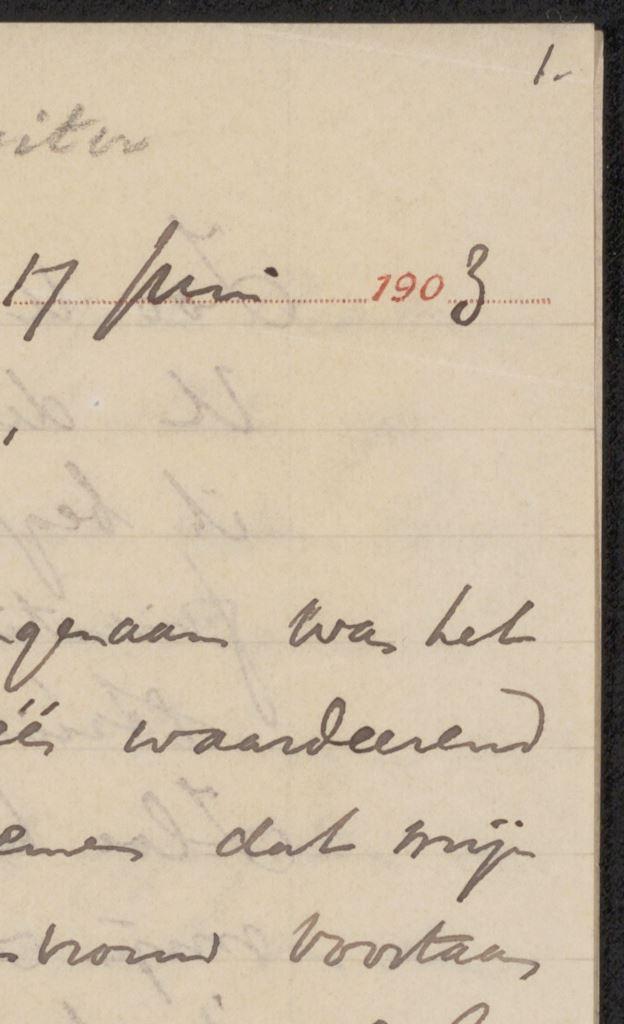 1.
17 Juni 1903
,
genaam was het
éés waardeerend
emen dat mijn
trouw voortaan